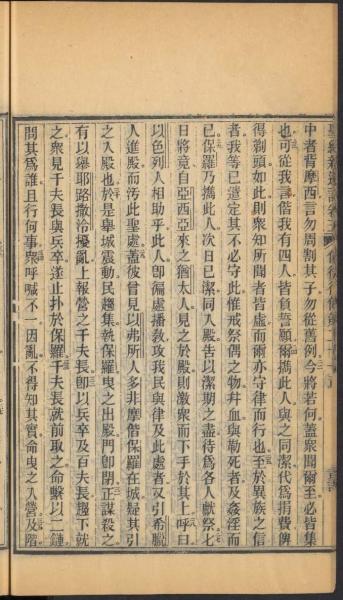 中者背摩西言勿周割其子勿從舊例今將若何蓋衆聞爾至必皆集
也可從我言偕我有四人皆負誓願爾攜此人與之同潔代為捐費俾
得剃頭如此則衆知所聞者皆虛而爾亦守律而行也至於異族之信
者我等已遣定其不必守此惟戒祭偶之物幷血與勒死者及姦淫而
已保羅乃攜此人次日已潔同入殿告以潔期之盡待為各人獻祭七
日將竟自亞西亞來之猶太人見之於殿則激衆而下手於其上呼曰
以色列人相助乎此人卽徧處播教攻我民與律及此處者又引希臘
人進殿而污此聖處蓋彼曾見以弗所人多非摩偕保羅在城疑其引
之入殿也於是舉城震動民趨集執保羅曳之出殿門卽閉正謀殺之
有以舉耶路撒冷擾亂上報營之千夫長卽以兵卒及百夫長趨下就
之衆見千夫長與兵卒遂止扑於保羅千夫長就前取之命繫以二鏈
問其為誰且行何事衆呼喊不一因亂不得知其實命曳之入營及階